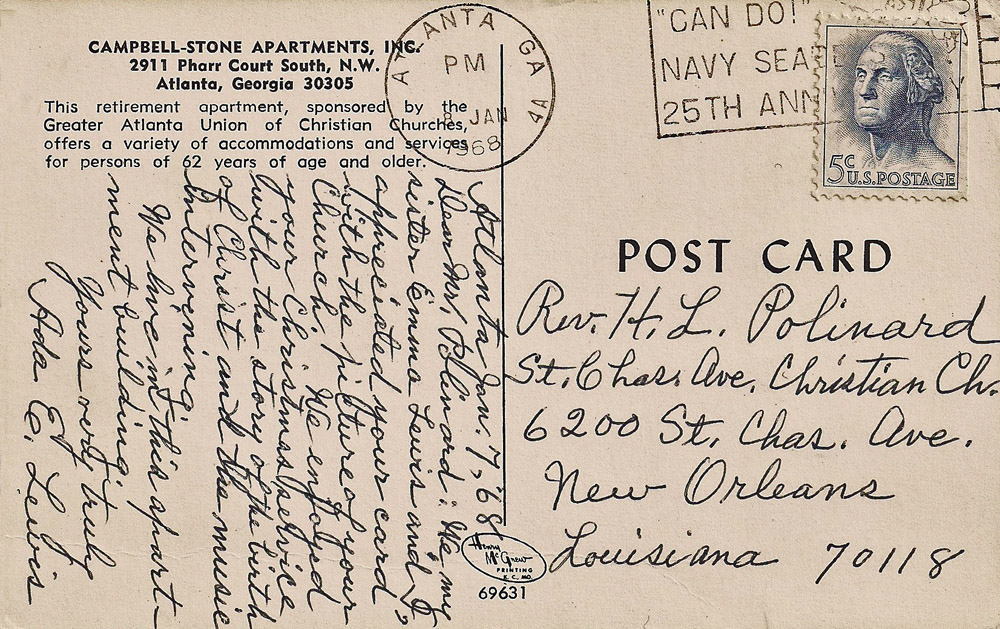 CAMPBELL-STONE APARTMENTS, INC.
2911 Pharr Court South, N.W.
Atlanta, Georgia 30305
This retirement apartment, sponsored by the
Greater Atlanta Union of Christian Churches,
offers a variety of accommodations and services
for persons of 62 years of age and older.
ATLANTA GA
PM
8 JAN
1968
"CAN DO!"
NAVY SEA
25TH ANN
5c
U.S. POSTAGE
POST CARD
Rev. H. L. Polinard
St. Chas. Ave. Christian Ch.
6200 St. Chas. Ave.
New Orleans
Louisiana 70118
Atlanta Jan. 7, '68
Dear Mr. Polinard: We, my
sister Emma Lewis and I
appreciated your card
with the picture of your
Church. We enjoyed
your Christmas service
with the story of the birth
of Christ and the music
intervening.
We live in this apart-
ment building.
Yours very truly
Ada E. Lewis
Henry
McGrew
PRINTING
K. C. MO.
69631